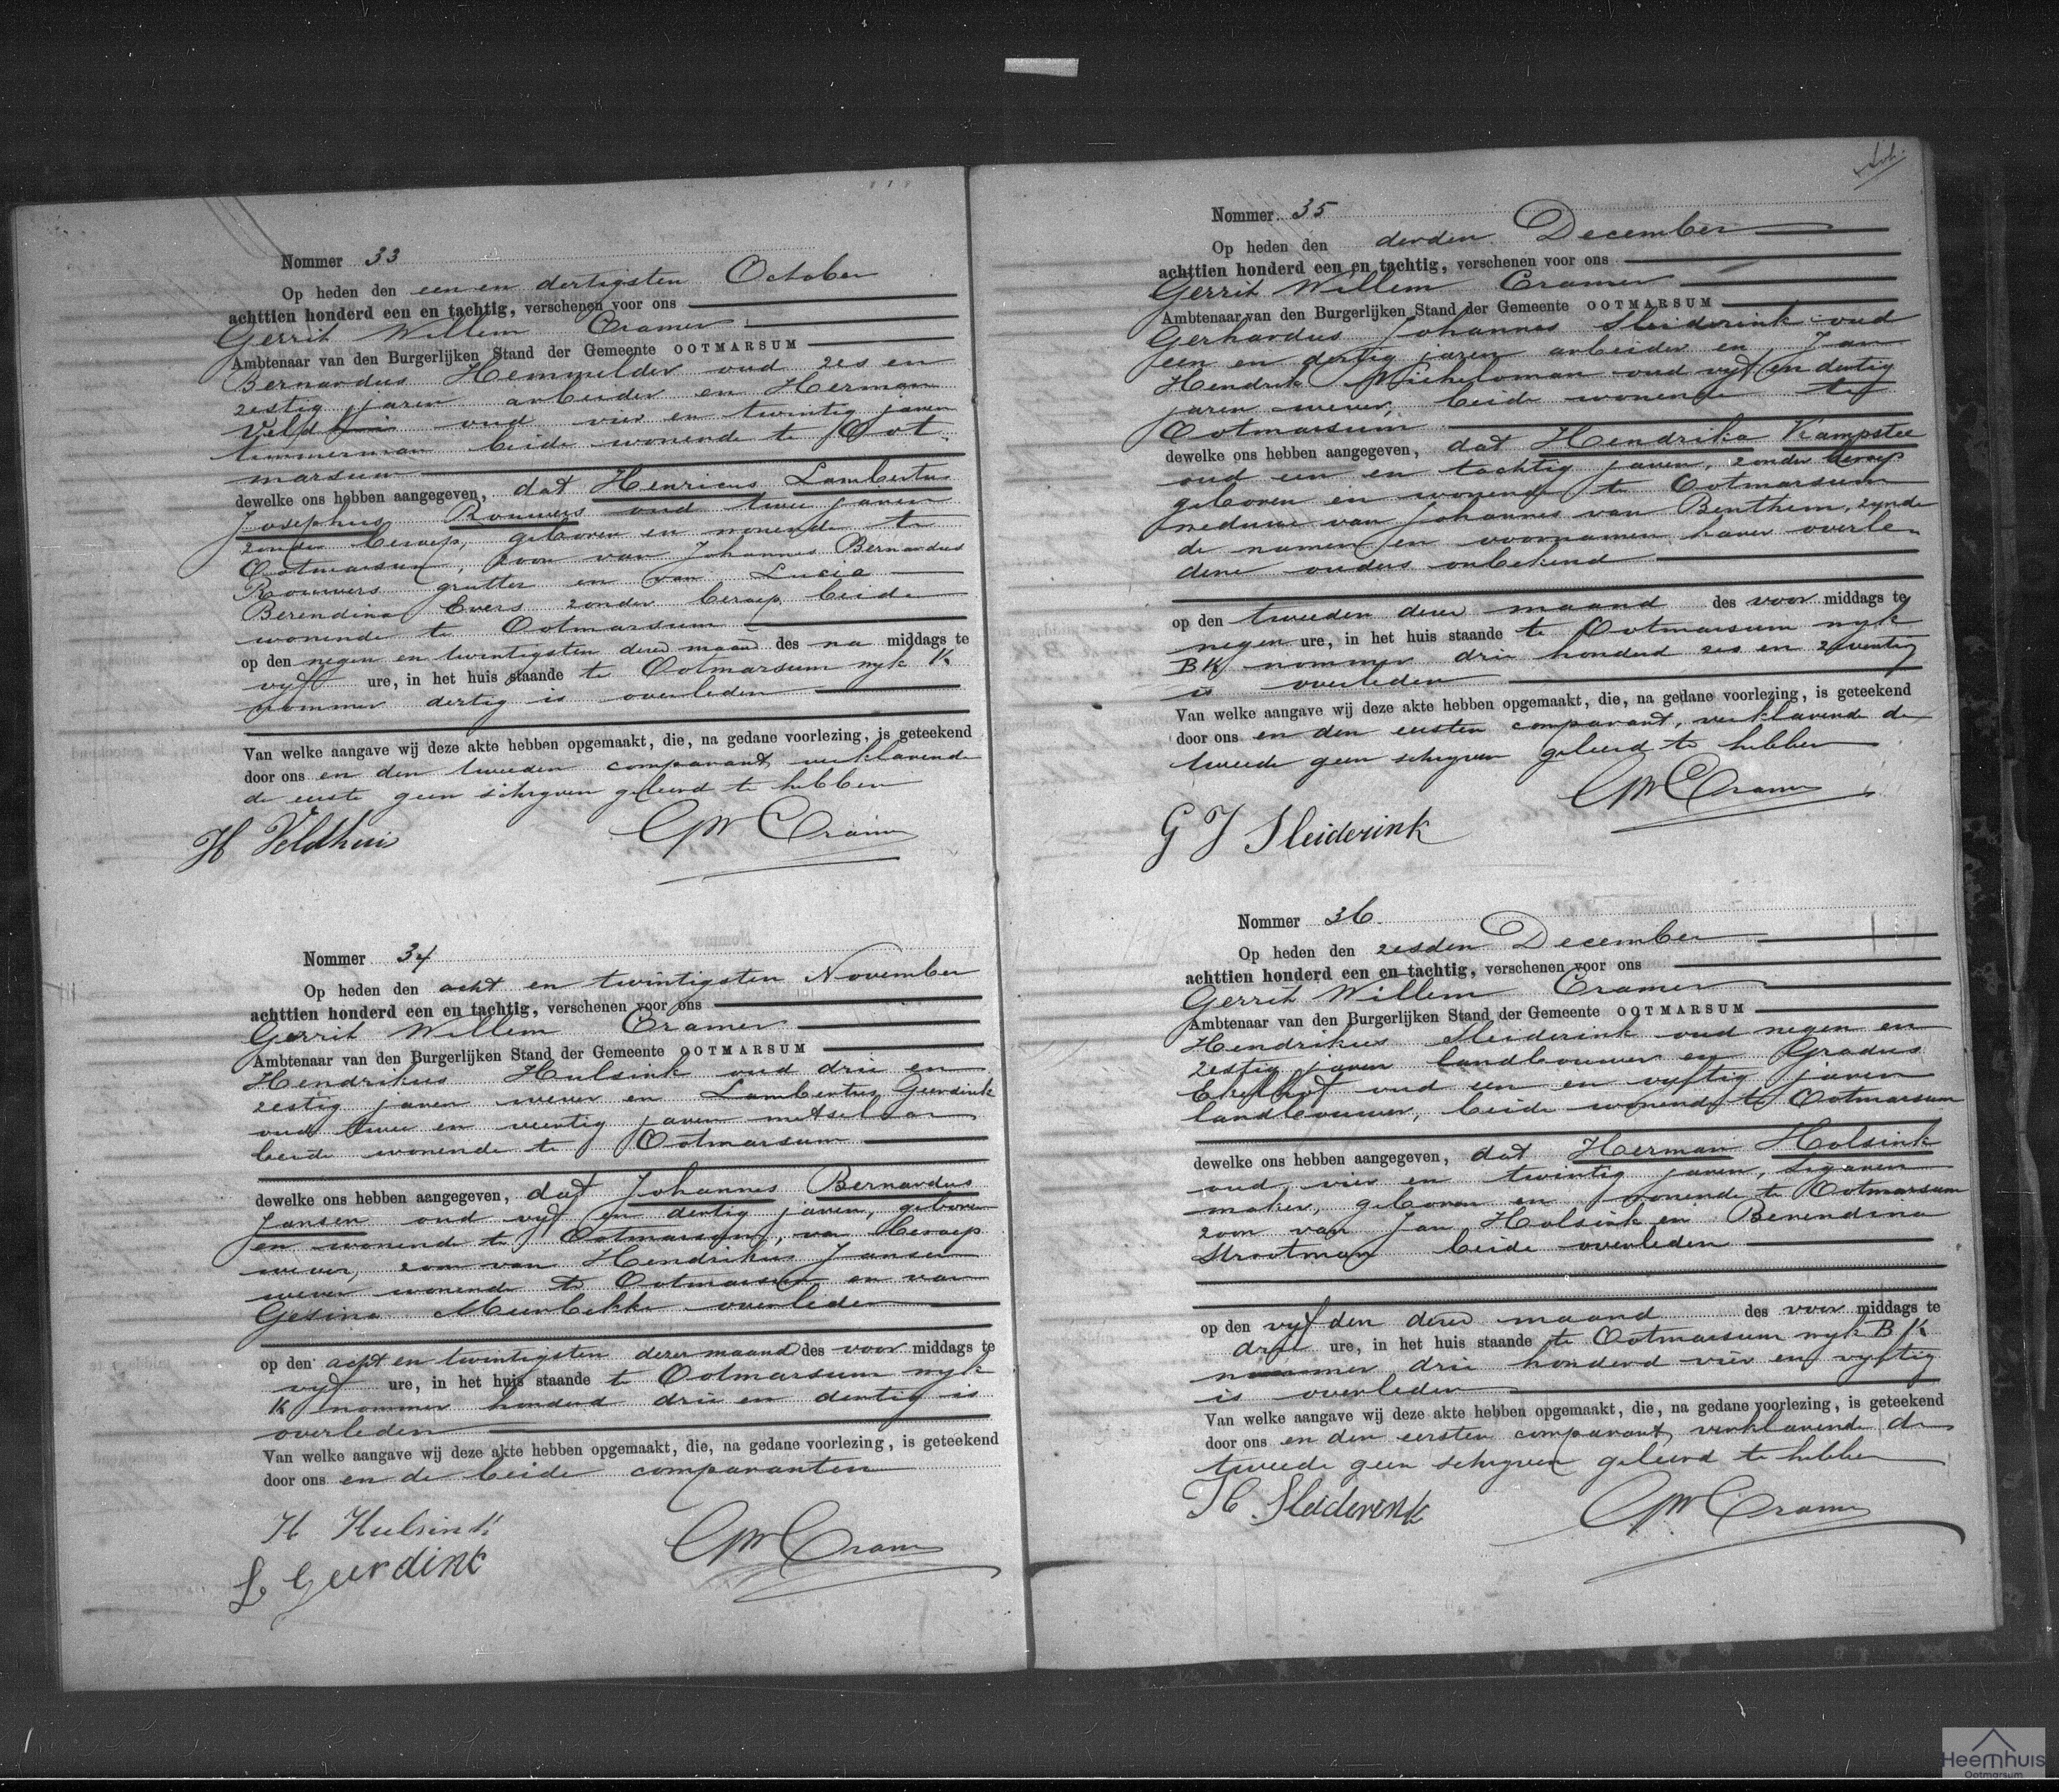 Nommer 33
Op heden den een en dertigsten October
achttien honderd een en tachtig, verschenen voor ons
Gerrit Willem Cramer
Ambtenaar van den Burgerlijken Stand der Gemeente OOTMARSUM
Bernardus Hemmelder oud zes en
zestig jaren arbeider en Herman
Veldhuis oud vier en twintig jaren
timmerman beide wonende te Oot
marsum
dewelke ons hebben aangegeven, dat Henricus Lambertus
Josephus Rouwers oud twee jaren
zonder beroep, geboren en wonende te
Ootmarsum, zoon van Johannes Bernardus
Rouwers grutter en van Lucia
Berendina Evers zonder beroep beide
wonende te Ootmarsum
op den negen en twintigsten dezer maand des na middags te
vyf ure, in het huis staande te Ootmarsum wyk K
nommer dertig is overleden
Van welke aangave wij deze akte hebben opgemaakt, die, na gedane voorlezing, is geteekend
door ons en den tweeden comparant verklarende
de eerste geen schryven geleerd te hebben
H Veldhuis GWCramer
Nommer 34
Op heden den acht en twintigsten November
achttien honderd een en tachtig, verschenen voor ons
Gerrit Willem Cramer
Ambtenaar van den Burgerlijken Stand der Gemeente OOTMARSUM
Hendrikus Hulsink oud drie en
zestig jaren wever en Lambertus Geerdink
oud twee en veertig jaren metselaar
beide wonende te Ootmarsum
dewelke ons hebben aangegeven, dat Johannes Bernardus
Jansen oud vyf en dertig jaren, geboren
en wonende te Ootmarsum, van beroep
wever, zoon van Hendrikus Jansen
wever wonende te Ootmarsum en van
Gesina Meerbekke overleden
op den acht en twintigsten dezer maand des voor middags te
vyf ure, in het huis staande te Ootmarsum wyk
K nommer honderd drie en dertig is
overleden
Van welke aangave wij deze akte hebben opgemaakt, die, na gedane voorlezing, is geteekend
door ons en de beide comparanten
H Hulsink GWCramer
L Geerdink
Nommer 35
Op heden den derden December
achttien honderd een en tachtig, verschenen voor ons
Gerrit Willem Cramer
Ambtenaar van den Burgerlijken Stand der Gemeente OOTMARSUM
Gerhardus Johannes Sleiderink oud
een en dertig jaren arbeider en Jan
Hendrik oud vyf en dertig
jaren wever, beide wonende te
Ootmarsum
dewelke ons hebben aangegeven, dat Hendrika Kampstee
oud een en tachtig jaren, zonder beroep
geboren en wonende te Ootmarsum
weduwe van Johannes van Benthem, zynde
de namen en voornamen harer overle
dene ouders onbekend
op den tweeden dezer maand des voor middags te
negen ure, in het huis staande te Ootmarsum wyk
BK nommer drie honderd zes en zeventig
is overleden
Van welke aangave wij deze akte hebben opgemaakt, die, na gedane voorlezing, is geteekend
door ons en den eersten comparant, verklarende de
tweede geen schryven geleerd te hebben
GWCramer
G J Sleiderink
Nommer 36.
Op heden den zesden December
achttien honderd een en tachtig, verschenen voor ons
Gerrit Willem Cramer
Ambtenaar van den Burgerlijken Stand der Gemeente OOTMARSUM
Hendrikus Sleiderink oud negen en
zestig jaren landbouwer en Gradus
Ekelhof oud een en vyftig jaren
landbouwer, beide wonende te Ootmarsum
dewelke ons hebben aangegeven, dat Herman Holsink
oud vier en twintig jaren, sigaren
maker, geboren en wonende te Ootmarsum
zoon van Jan Holsink en Berendina
Strootman beide overleden
op den vyfden dezer maand des voor middags te
drie ure, in het huis staande te Ootmarsum wyk BK
nommer drie honderd vier en vyftig
is overleden
Van welke aangave wij deze akte hebben opgemaakt, die, na gedane voorlezing, is geteekend
door ons en den eersten comparant verklarende de
tweede geen schryven geleerd te hebben
H. Sleiderink GWCramer
Heemhuis
Ootmarsum